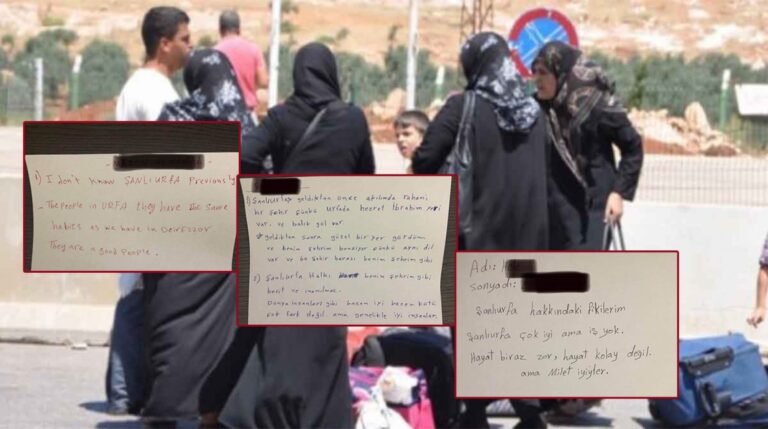 1) I don't know ŞANLIURFA Previously
- The People in URFA they have the same
habies as we have in DeirEzzor
They are a good People.
1) Şanlıurfa geldiktan önce aklımda rohani
bir şehir çünkü Urfada hazret İbrahim
var. ve balık gol var
geldiktan sonra güzel bir yer gördüm
ve benim şehrim benziyor çünkü aynı dil
var ve bu şehir barası benim şehrim gibi
2) Şanlıurfa Halkı benim şehrim gibi
basit ve
Dünya insanları gibi bazen iyi bazen kötü
çok fark değil ama genelikle iyi insanlar
Adı: H
soyadı:
Şanlıurfa hakkındaki fikilerim
Şanlıurfa çok iyi ama iş yok.
Hayat biraz zor, hayat kolay değil.
ama Milet iyiyler.